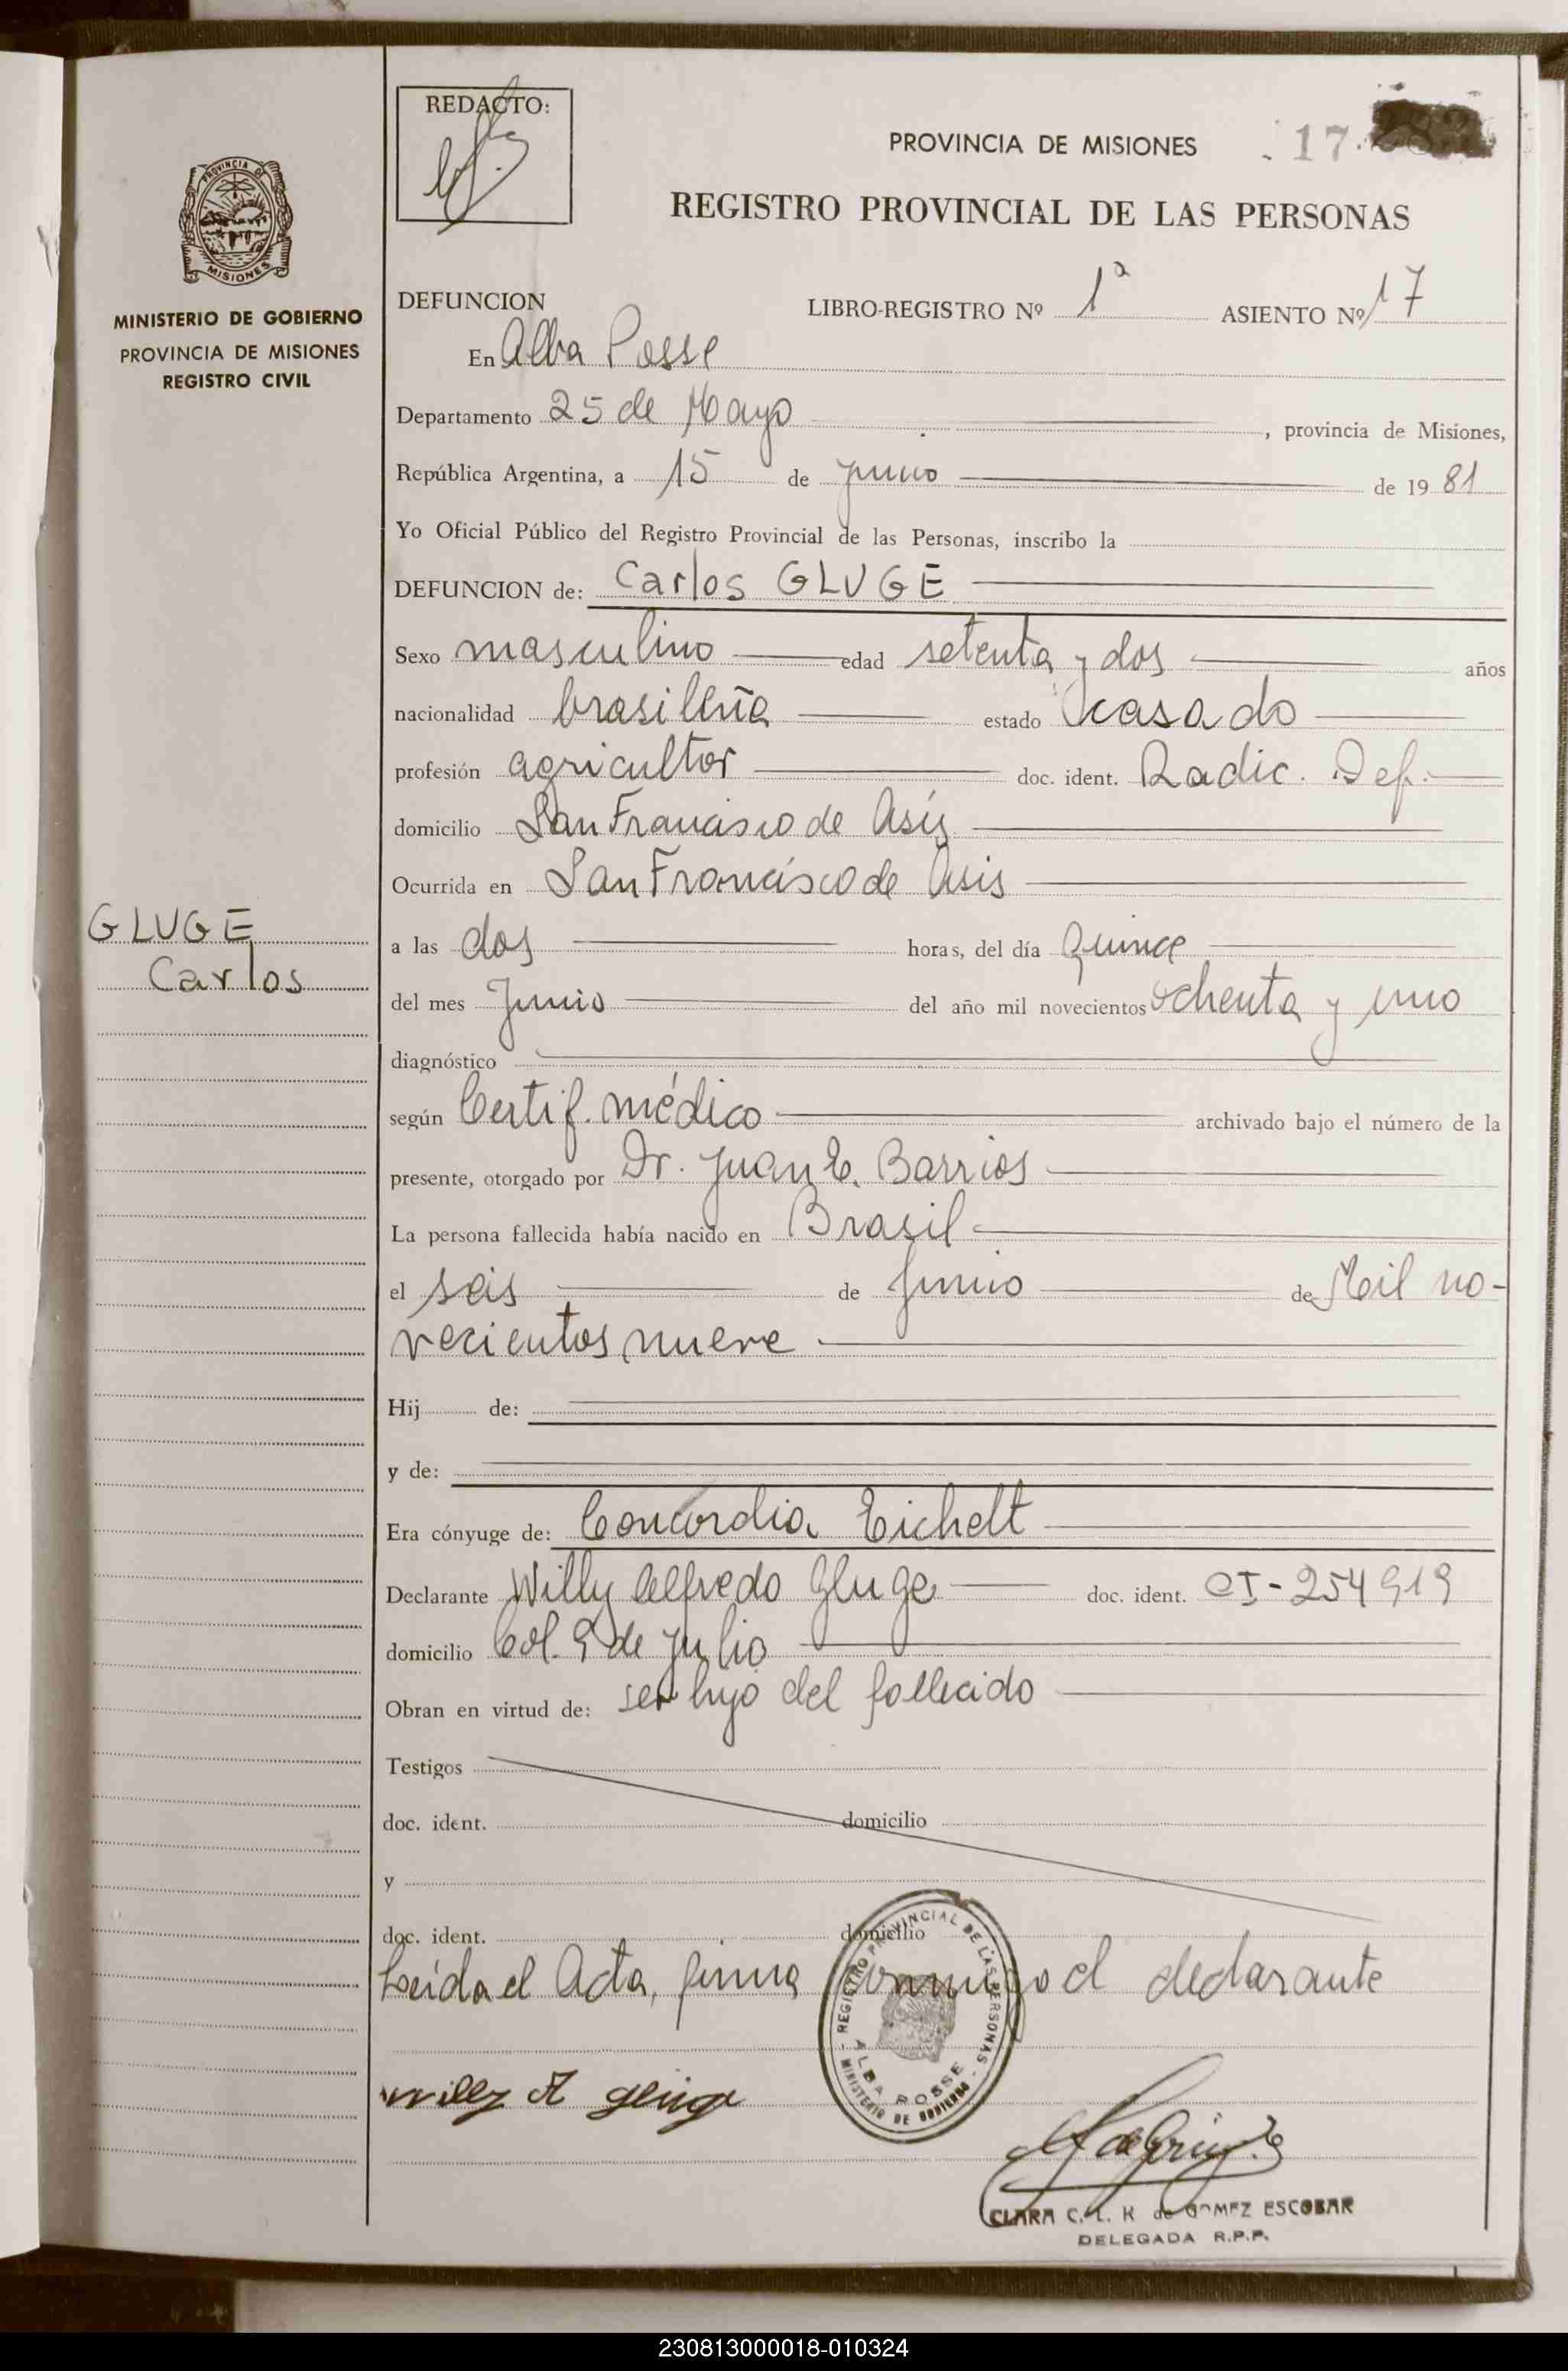 REDACTO:
PROVINCIA DE MISIONES
17
REGISTRO PROVINCIAL DE LAS PERSONAS
PROVINCIA DE
MISIONES
MINISTERIO DE GOBIERNO
PROVINCIA DE MISIONES
REGISTRO CIVIL
DEFUNCION LIBRO-REGISTRO Nº 1ª ASIENTO Nº 17
En Alba Posse
Departamento 25 de Mayo, provincia de Misiones,
República Argentina, a 15 de junio de 1981
Yo Oficial Público del Registro Provincial de las Personas, inscribo la
DEFUNCION de: Carlos GLUGE
Sexo masculino edad setenta y dos años
nacionalidad brasileña estado casado
profesión agricultor doc. ident. Radic. Def.
domicilio San Francisco de Asís
Ocurrida en San Francisco de Asis
GLUGE
Carlos
a las dos horas, del día quince
del mes Junio del año mil novecientos ochenta y uno
diagnóstico
según Certif. médico archivado bajo el número de la
presente, otorgado por Dr. Juan E. Barrios
La persona fallecida había nacido en Brasil
el seis de Junio de Mil no-
vecientos nueve
Hij de:
y de:
Era cónyuge de: Concordia Eichelt
Declarante Willy Alfredo Gluge doc. ident. CI-254919
domicilio Col. 9 de Julio
Obran en virtud de: ser hijo del fallecido
Testigos
doc. ident. domicilio
y
doc. ident. domicilio
Leída el Acta, firma conmigo el declarante
REGISTRO PROVINCIAL DE LAS PERSONAS
ALBA POSSE
MINISTERIO DE GOBIERNO
Willy A Gluge
CLARA C. L. K de GOMEZ ESCOBAR
DELEGADA R.P.P.
230813000018-010324